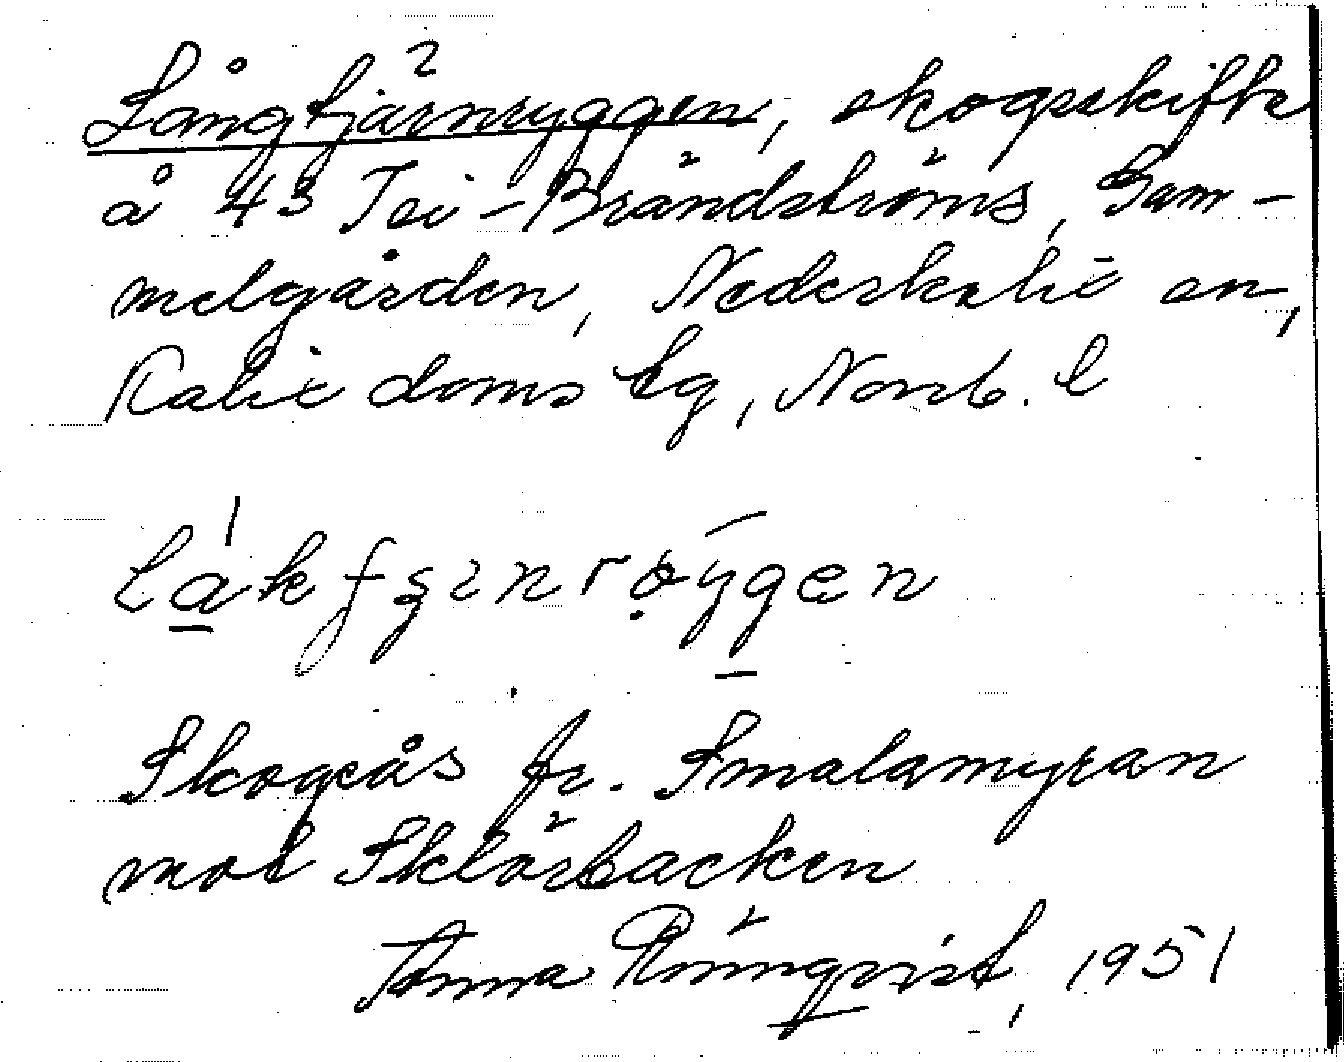 Långtjärnryggen, skogsskifte
å 43 Tei-Brändströms, Gam-
melgården, Nederkalix sn,
Kalix doms lg, Norrb. l
Skogsås fr. Smalamyran
mot Sklärbacken
Anna Rönnqvist, 1951